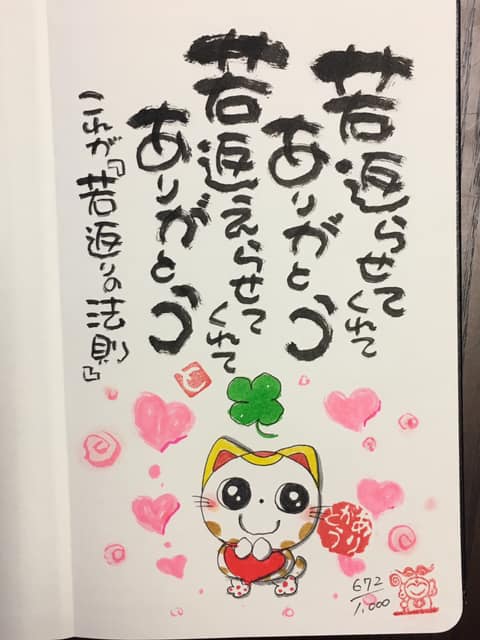 若返らせてくれて
ありがとう
若返えらせてくれて
ありがとう
これが『若返りの法則』
ありがとう
672/1,000